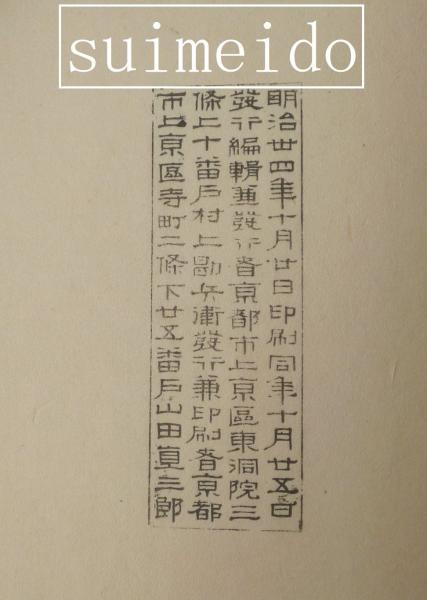 suimeido
明治廿四年十月廿日印刷同年十月廿五日
發行編輯兼發行者京都市上京區東洞院三
條上十番戶村上勘兵衛發行兼印刷者京都
市上京區寺町二條下廿五番戶山田直三郎